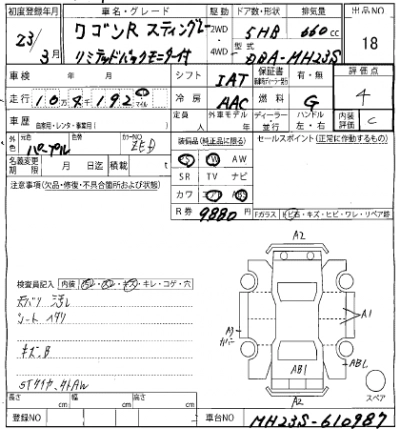 初度登録年月 車名・グレード 駆動 ドア数・形状 排気量 出品NO
23/3月 ワゴンR スティングレー 2WD・4WD 5HB 660cc 18
リミテッドパックモニター付 型式 DBA-MH23S
車検 年 月 シフト IAT 保証書 有・無 評価点
走行 10万4192 マイル 冷房 AAC 燃料 G 4
車歴 自家用・レンタ・事業用( ) 定員 人 外車モデル 年 ディーラー・並行 ハンドル 左・右 内装評価 C
外色 元色 色替 カラーNO 装備品(純正品に限る) セールスポイント(正常に動作するもの)
パープル ZED PS PW AW
名義変更期限 月 日迄 積載 t SR TV ナビ
注意事項(欠品・修復・不具合箇所および状態) カワ エアB ABS
R券 9880円 Fガラス トビ石・キズ・ヒビ・ワレ・リペア跡
A2
検査員記入 内装 キレ・コゲ・穴
シート ヘタリ
A1
キズ、B
AB1 ABL
A2 スペア
長さ cm 幅 cm 高さ cm
登録NO 車台NO MH23S-610987